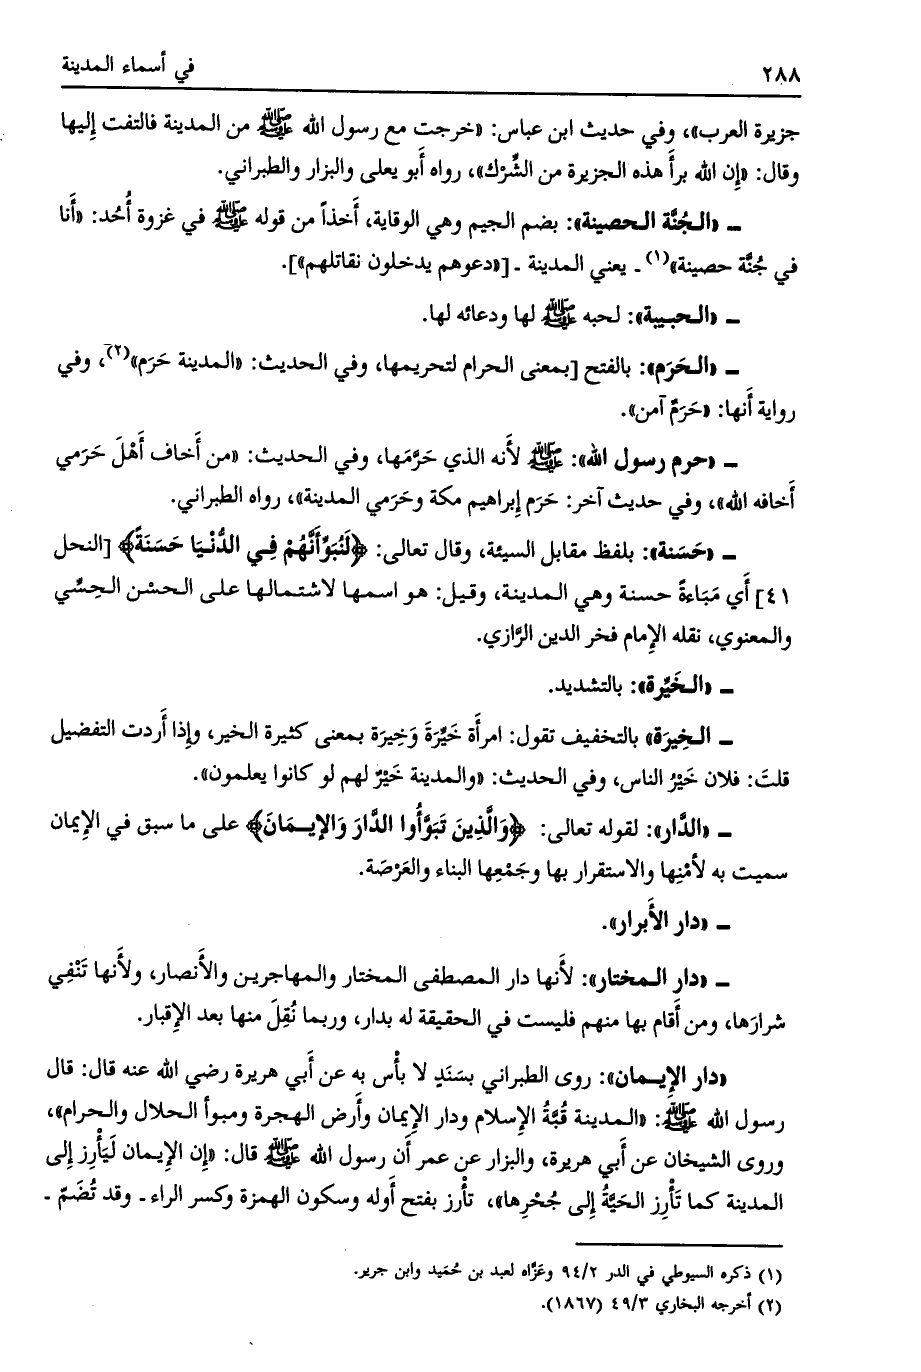 ٢٨٨ في أسماء المدينة
جزيرة العرب»، وفي حديث ابن عباس: «خرجت مع رسول الله ﷺ من المدينة فالتفت إليها
وقال: «إن الله برأ هذه الجزيرة من الشِّرك»، رواه أبو يعلى والبزار والطبراني.
ـ «الجُنَّة الحصينة»: بضم الجيم وهي الوقاية، أخذاً من قوله ﷺ في غزوة أُحُد: «أنا
في جُنَّة حصينة»(١) ـ يعني المدينة ـ [«دعوهم يدخلون نقاتلهم»].
ـ «الحبيبة»: لحبه ﷺ لها ودعائه لها.
ـ «الحَرَم»: بالفتح [بمعنى الحرام لتحريمها، وفي الحديث: «المدينة حَرَم»(٢)، وفي
رواية أنها: «حَرَمٌ آمن».
ـ «حرم رسول الله»: ﷺ لأنه الذي حَرَّمَها، وفي الحديث: «من أخاف أَهْلَ حَرَمي
أخافه الله»، وفي حديث آخر: حَرَم إبراهيم مكة وحَرَمي المدينة»، رواه الطبراني.
ـ «حَسَنة»: بلفظ مقابل السيئة، وقال تعالى: ﴿لَنُبَوِّأَنَّهُمْ فِي الدُّنْيَا حَسَنَةً﴾ [النحل
٤١] أي مَبَاءةً حسنة وهي المدينة، وقيل: هو اسمها لاشتمالها على الحسْن الحِسِّي
والمعنوي، نقله الإمام فخر الدين الرَّازي.
ـ «الخَيِّرة»: بالتشديد.
ـ الخِيرَة» بالتخفيف تقول: امرأة خَيِّرَةَ وَخِيرَة بمعنى كثيرة الخير، وإذا أردت التفضيل
قلتَ: فلان خَيْرُ الناس، وفي الحديث: «والمدينة خَيْرٌ لهم لو كانوا يعلمون».
ـ «الدَّار»: لقوله تعالى: ﴿وَالَّذِينَ تَبَوَّأُوا الدَّارَ وَالإيـمَانَ﴾ على ما سبق في الإيمان
سميت به لأمْنِها والاستقرار بها وجَمْعِها البناء والعَرْصَة.
ـ «دار الأبرار».
ـ «دار المختار»: لأنها دار المصطفى المختار والمهاجرين والأنصار، ولأنها تَنْفِي
شرارَها، ومن أقام بها منهم فليست في الحقيقة له بدار، وربما نُقِلَ منها بعد الإقبار.
«دار الإيـمان»: روى الطبراني بسَنَدٍ لا بأس به عن أبي هريرة رضي الله عنه قال: قال
رسول الله ﷺ: «المدينة قُبَّةُ الإسلام ودار الإيمان وأرض الهجرة ومبوأ الحلال والحرام»،
وروى الشيخان عن أبي هريرة، والبزار عن عمر أن رسول الله ﷺ قال: «إن الإيمان لَيَأْرِز إلى
المدينة كما تَأْرِز الحَيَّةُ إلى جُحْرِها»، تأْرز بفتح أوله وسكون الهمزة وكسر الراء ـ وقد تُضَمّ ـ
(١) ذكره السيوطي في الدر ٩٤/٢ وعَزَّاه لعبد بن حُمَيد وابن جرير.
(٢) أخرجه البخاري ٤٩/٣ (١٨٦٧).